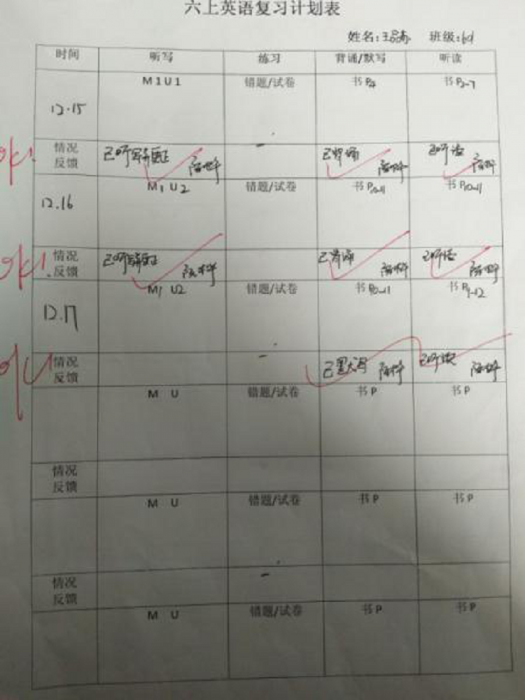 六上英语复习计划表
姓名: 班级:
时间 听写 练习 背诵/默写 听读
12.15 M1U1 错题/试卷 书P4 书P2-7
ok! 情况反馈 已听写并订正 已背诵 已听读
12.16 M1 U2 错题/试卷 书P10-11 书P10-11
ok! 情况反馈 已听写并订正 已背诵 已听读
12.17 M1 U2 错题/试卷 书P10-11
ok! 情况反馈 已默写 已听读
M U 错题/试卷 书P 书P
情况反馈
M U 错题/试卷 书P 书P
情况反馈
M U 错题/试卷 书P 书P